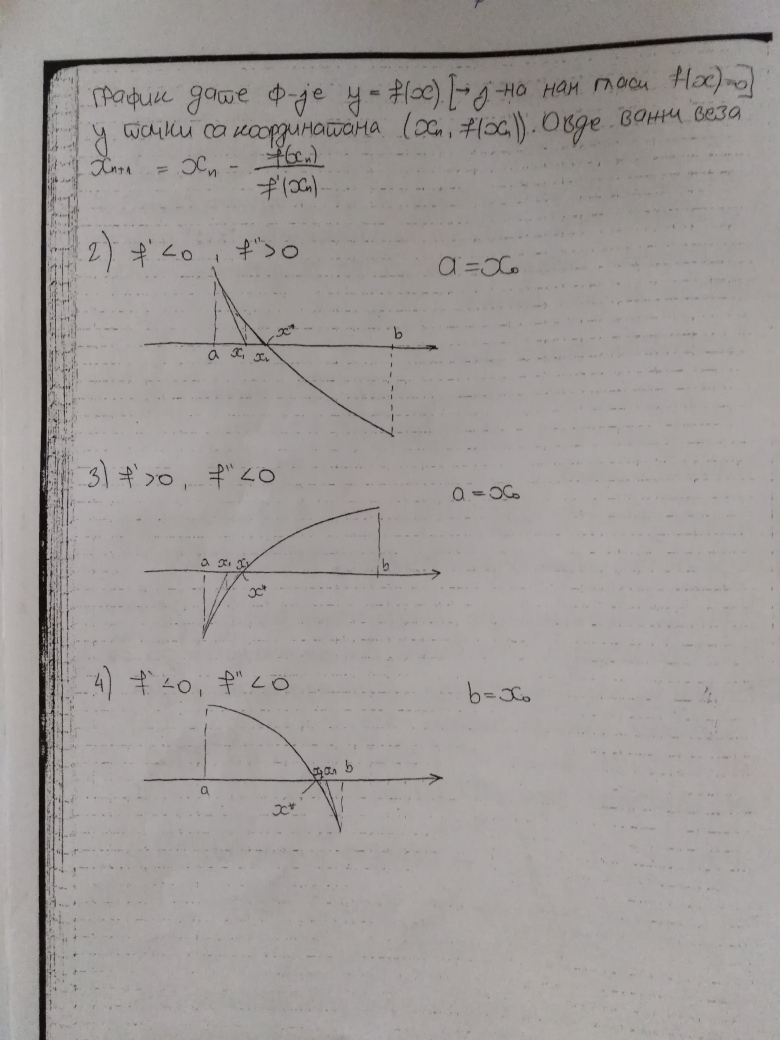 График дате ф-је y = f(x) [→ј-на нам гласи f(x)=0]
у тачки са координатама (xₙ, f(xₙ)). Овде важи веза
xₙ₊₁ = xₙ - f(xₙ)/f'(xₙ)
2) f' < 0 , f'' > 0
a = x₀
x*
b
a x₁ x₂
3) f' > 0 , f'' < 0
a = x₀
a x₁ x₂
b
x*
4) f' < 0 , f'' < 0
b = x₀
x₂ x₁ b
a
x*